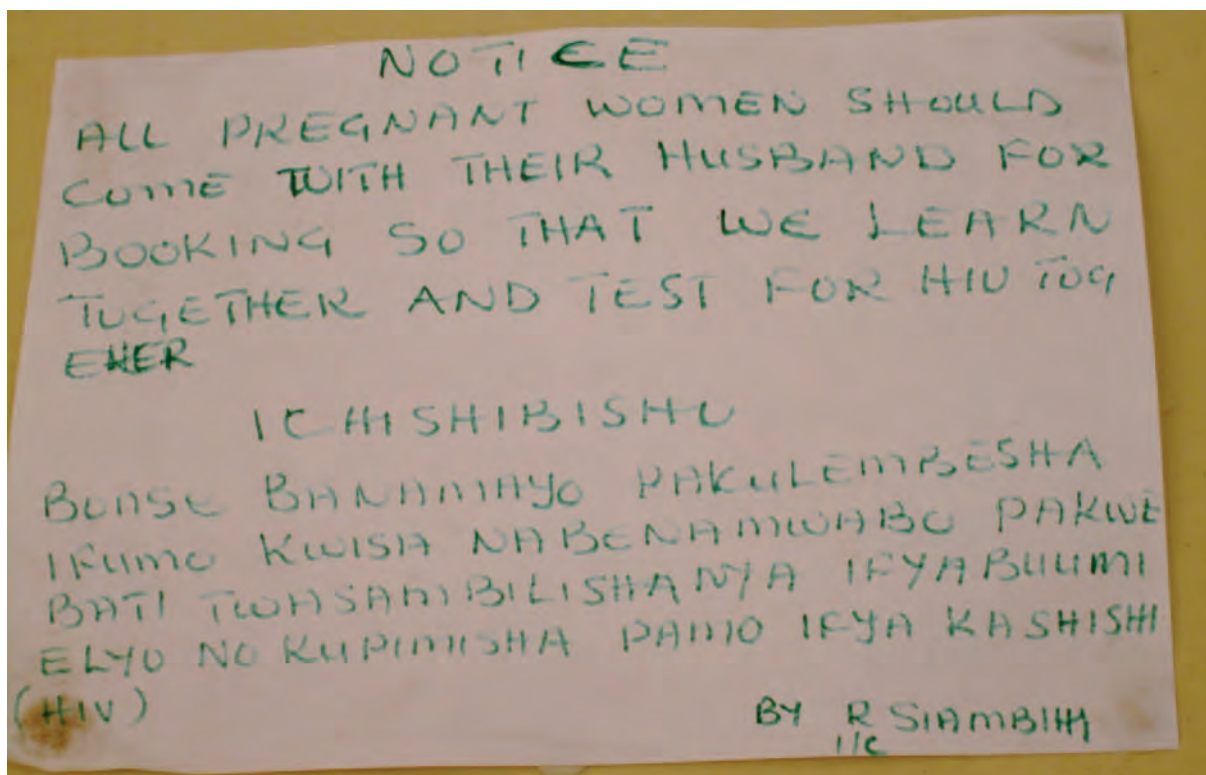 NOTICE
ALL PREGNANT WOMEN SHOULD
COME WITH THEIR HUSBAND FOR
BOOKING SO THAT WE LEARN
TOGETHER AND TEST FOR HIV TOG
EHER
ICHISHIBISHO
BONSE BANAMAYO PAKULEMBESHA
IFUMO KWISA NABENAMWABO PAKWE
BATI TWASAMBILISHANYA IFYABUUMI
ELYO NO KUPIMISHA PAMO IFYA KASHISHI
(HIV)
BY R SIAMBIHI
I/C